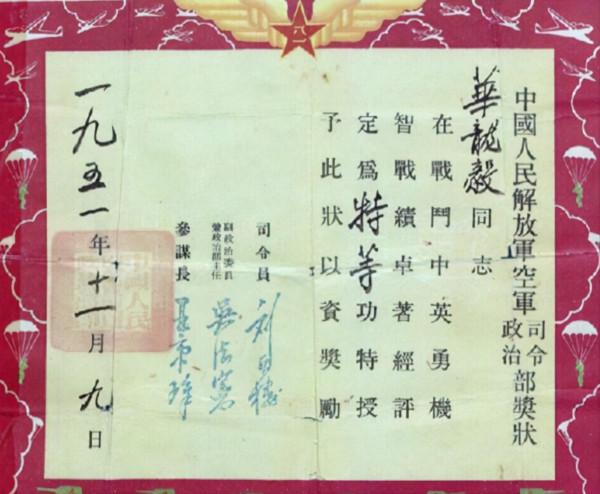 中國人民解放軍空軍司令政治部獎狀
華龍毅同志
在戰鬥中英勇機
智戰績卓著經評
定爲特等功特授
予此狀以資獎勵
司令員 刘亚楼
副政治委員
兼政治部主任 吳法憲
參謀長 王秉璋
一九五一年十一月九日